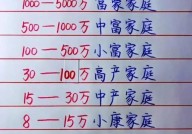 1000—5000万 富豪家庭
500—1000万 中富家庭
100—500万 小富家庭
30—100万 高产家庭
15—30万 中产家庭
8—15万 小康家庭